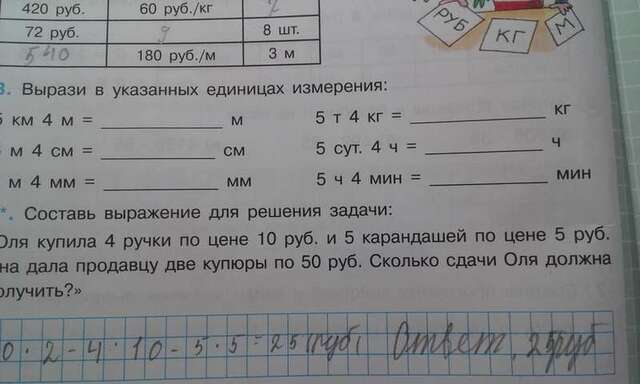 420 руб. 60 руб./кг 7
72 руб. 9 8 шт.
540 180 руб./м 3 м
РУБ КГ М
3. Вырази в указанных единицах измерения:
5 км 4 м = м 5 т 4 кг = кг
м 4 см = см 5 сут. 4 ч = ч
м 4 мм = мм 5 ч 4 мин = мин
*. Составь выражение для решения задачи:
Оля купила 4 ручки по цене 10 руб. и 5 карандашей по цене 5 руб.
на дала продавцу две купюры по 50 руб. Сколько сдачи Оля должна
олучить?»
0 · 2 - 4 · 10 - 5 · 5 = 25 (руб) Ответ, 25 руб